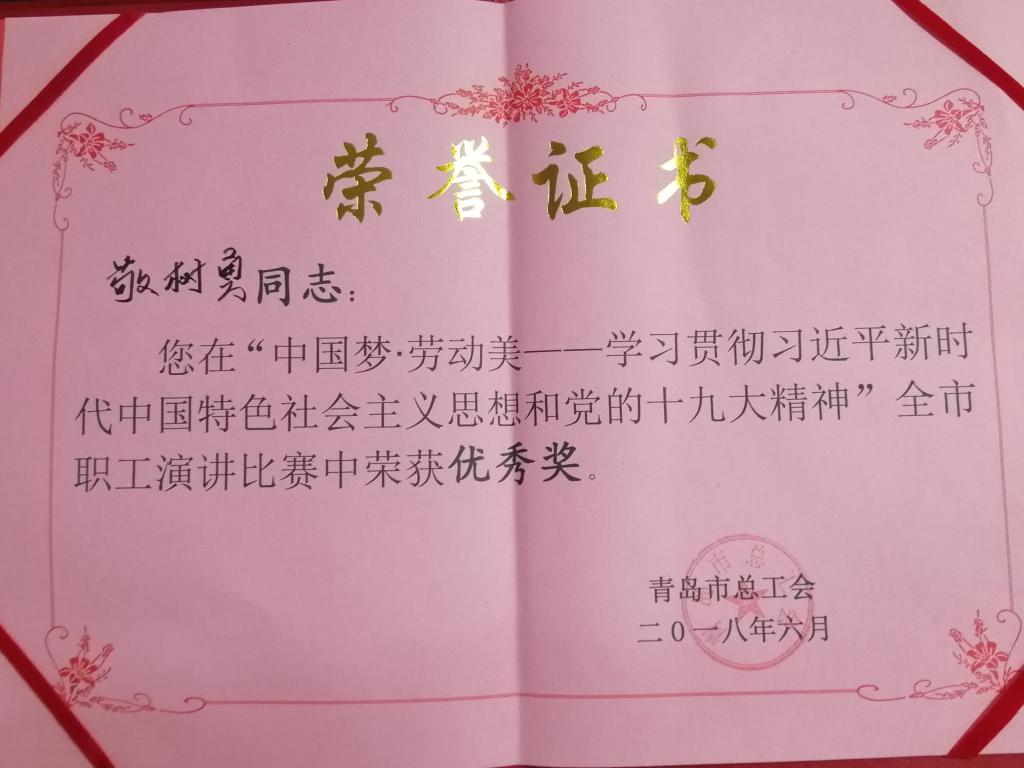 荣誉证书
敬树勇同志：
您在“中国梦·劳动美——学习贯彻习近平新时
代中国特色社会主义思想和党的十九大精神”全市
职工演讲比赛中荣获优秀奖。
市总
青岛市总工会
二〇一八年六月